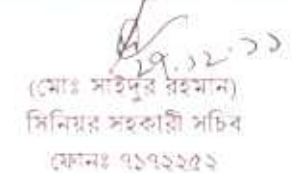 ২৭.১২.১১
(মোঃ সাইদুর রহমান)
সিনিয়র সহকারী সচিব
ফোনঃ ৭১৭২২৫২